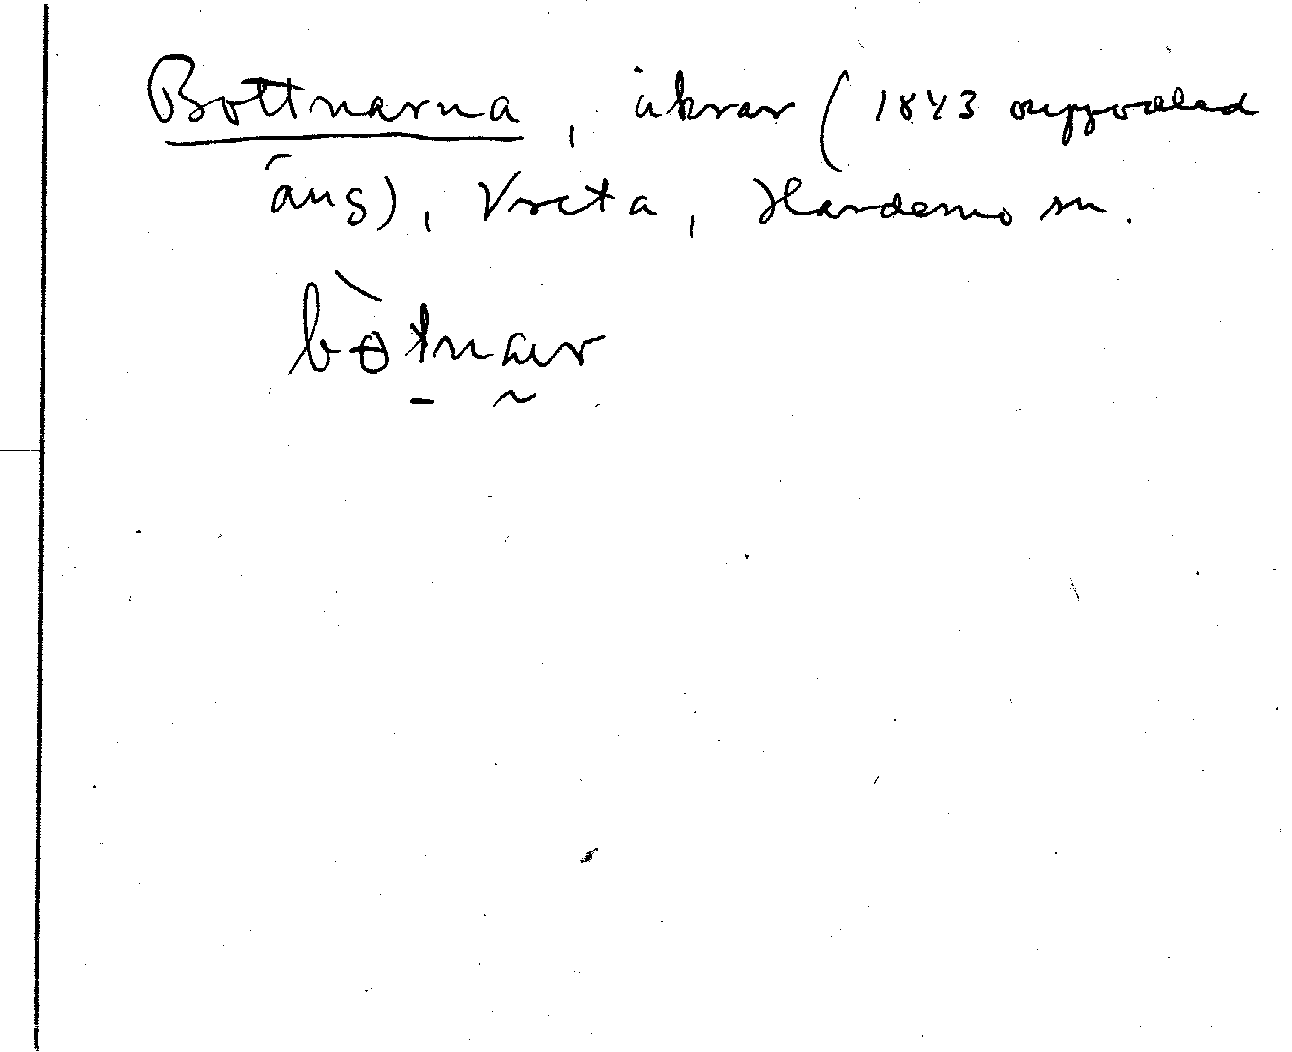 Bottnarna, åkrar (1843 ouppodlad
äng), Vreta, Hardemo sn.
bòtnar